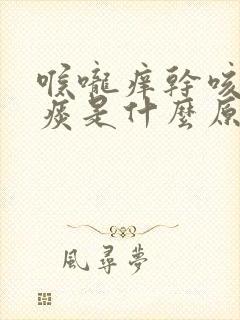 喉嚨痒幹咳
痰是什麼原
風尋夢